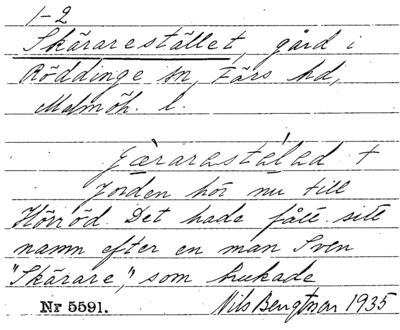 1-2
Skärarestället, gård i
Röddinge sn, Färs hd,
Malmöh. l.
Jorden hör nu till
Hörröd. Det hade fått sitt
namn efter en man Sven
"Skärare", som brukade
Nr 5591. Nils Bengtsson 1935